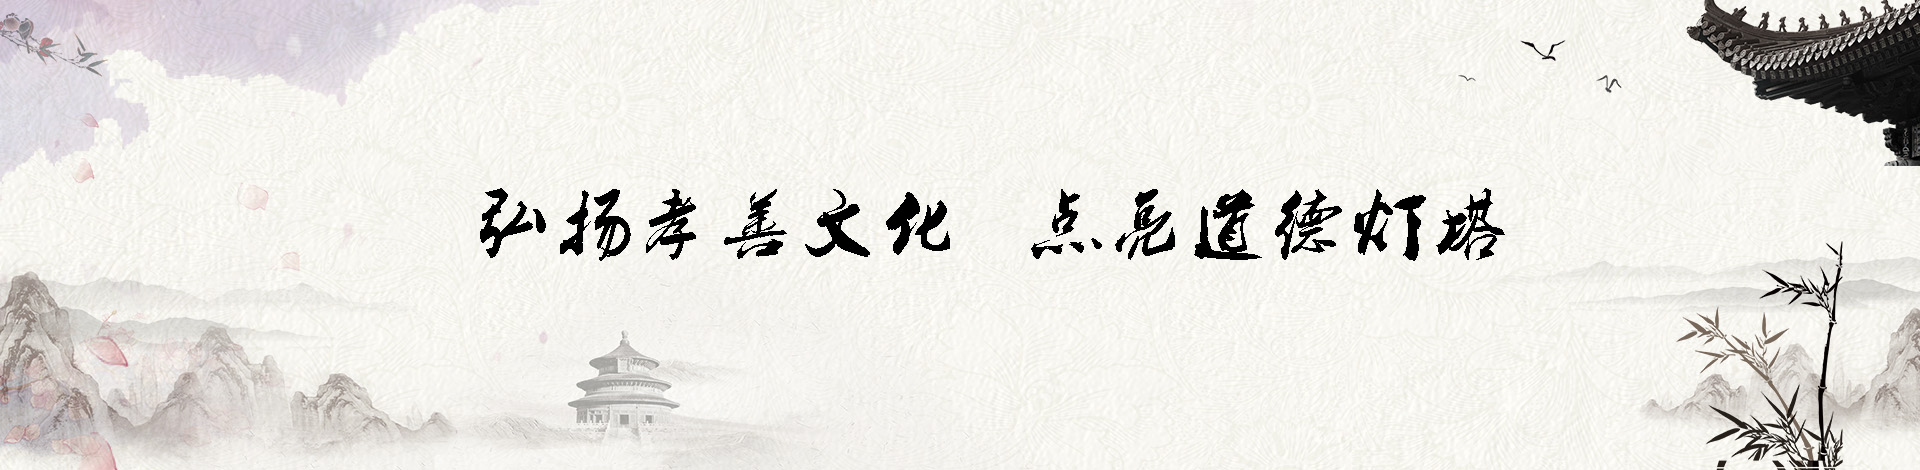 弘扬孝善文化 点亮道德灯塔